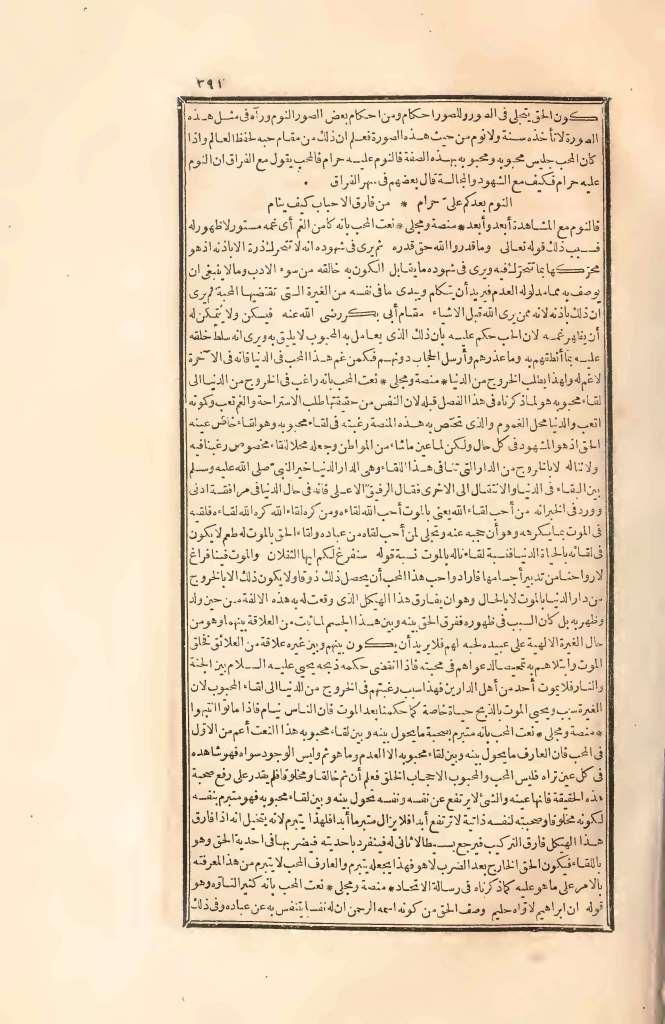 ٣٩١
كون الحق يتجلى فى الصور وللصور احكام ومن احكام بعض الصور النوم ورآه فى مثل هذه
الصورة لا تأخذه سنة ولا نوم من حيث هذه الصورة فعلم ان ذلك من مقام حبه لحفظ العالم واذا
كان المحب جليس محبوبه ومحبوبه بهذه الصفة فالنوم عليه حرام فالمحب يقول مع الفراق ان النوم
عليه حرام فكيف مع الشهود والمجالسة قال بعضهم فى سهر الفراق
النوم بعدكم علىّ حرام * من فارق الاحباب كيف ينام
فالنوم مع المشاهدة أبعد وأبعد * منصة ومجلى * نعت المحب بانه كامن الغم أى غمه مستور لا ظهور له
فسبب ذلك قوله تعالى وما قدروا الله حق قدره ثم يرى فى شهوده انه لا تتحرك ذرة الا باذنه اذ هو
محركها بما تتحرك فيه ويرى فى شهوده ما يقابل الكون به خالقه من سوء الادب وما لا ينبغى ان
يوصف به مما مدلوله العدم فيريد أن يتكلم ويبدى ما فى نفسه من الغيرة التى تقتضيها المحبة ثم يرى
ان ذلك باذنه لانه ممن يرى الله قبل الاشياء مقام أبى بكر رضى الله عنه فيسكن ولا يتمكن له
أن يظهر غمه لان الحب حكم عليه بان ذلك الذى يعامل به المحبوب لا يليق به ويرى انه سلط خلقه
عليه بما أنطقهم به وما عذرهم وأرسل الحجاب دونهم فكمن غم هذا المحب فى الدنيا فانه فى الآخرة
لا غم له ولهذا يطلب الخروج من الدنيا * منصة ومجلى * نعت المحب بانه راغب فى الخروج من الدنيا الى
لقاء محبوبه هو لما ذكرناه فى هذا الفصل قبله لان النفس من حقيقتها طلب الاستراحة والغم تعب وكمونه
اتعب والدنيا محل الغموم والذى تختص به هذه المنصة رغبته فى لقاء محبوبه وهو لقاء خاص عينه
الحق اذ هو المشهود فى كل حال ولكن لما عين ما شاء من المواطن وجعله محلا للقاء مخصوص رغبنا فيه
ولا نناله الا بالخروج من الدار التى تنافى هذا اللقاء وهى الدار الدنيا خير النبى صلى الله عليه وسلم
بين البقاء فى الدنيا والانتقال الى الاخرى فقال الرفيق الاعلى فانه فى حال الدنيا فى مرافقة ادنى
وورد فى الخبر انه من أحب لقاء الله يعنى بالموت أحب الله لقاءه ومن كره لقاء الله كره الله لقاءه فلقيه
فى الموت بما يكرهه وهو أن حجبه عنه وتجلى لمن أحب لقاءه من عباده ولقاء الحق بالموت له طعم لا يكون
فى لقائه بالحياة الدنيا فنسبة لقاءنا له بالموت نسبة قوله سنفرغ لكم ايها الثقلان والموت فينا فراغ
لارواحنا من تدبير أجسامها فاراد واحب هذا المحب أن يحصل ذلك ذوقا ولا يكون ذلك الا بالخروج
من دار الدنيا بالموت لا بالحال وهو ان يفارق هذا الهيكل الذى وقعت له به هذه الالفة من حين ولد
وظهر به بل كان السبب فى ظهوره ففرق الحق بينه وبين هذا الجسم لما ثبت من العلاقة بينهما وهو من
حال الغيرة الالهية على عبيده لحبه لهم فلا يريد أن يكون بينهم وبين غيره علاقة من العلائق فخلق
الموت وابتلاهم به تمحيصا لدعواهم فى محبته فاذا انقضى حكمه ذبحه يحيى عليه السلام بين الجنة
والنار فلا يموت أحد من أهل الدارين فهذا سبب رغبتهم فى الخروج من الدنيا الى لقاء المحبوب لان
الغيرة سبب ويحيى الموت بالذبح حياة خاصة كما حكمنا بعد الموت فان الناس نيام فاذا ماتوا انتبهوا
* منصة ومجلى * نعت المحب بانه متبرم بصحبة ما يحول بينه وبين لقاء محبوبه هذا النعت أعم من الاول
فى المحب فان العارف ما يحول بينه وبين لقاء محبوبه الا العدم وما هو ثم وليس الوجود سواه فهو شاهده
فى كل عين تراه فليس المحب والمحبوب الا حجاب الخلق فعلم أن ثم خالقا ومخلوقا فلم يقدر على رفع صحبة
هذه الحقيقة فانها عينه والشئ لا يرتفع عن نفسه ونفسه تحول بينه وبين لقاء محبوبه فهو متبرم بنفسه
لكونه مخلوقا وصحبته لنفسه ذاتية لا ترتفع أبدا فلا يزال متبرما أبدا فلهذا يتبرم لانه يتخيل انه اذا فارق
هذا الهيكل فارق التركيب فيرجع بسيطا لا ثانى له فينفرد باحديته فيضربها فى احدية الحق وهو
اللقاء فيكون الحق الخارج بعد الضرب لا هو فهذا يجعله يتبرم والعارف المحب لا يتبرم من هذا المعرفته
بالامر على ما هو عليه كما ذكرناه فى رسالة الاتحاد * منصة ومجلى * نعت المحب بانه كثير التأوه وهو
قوله ان ابراهيم لاوّاه حليم وصف الحق من كونه اسمه الرحمن ان له نفسا يتنفس به عن عباده وفى ذلك